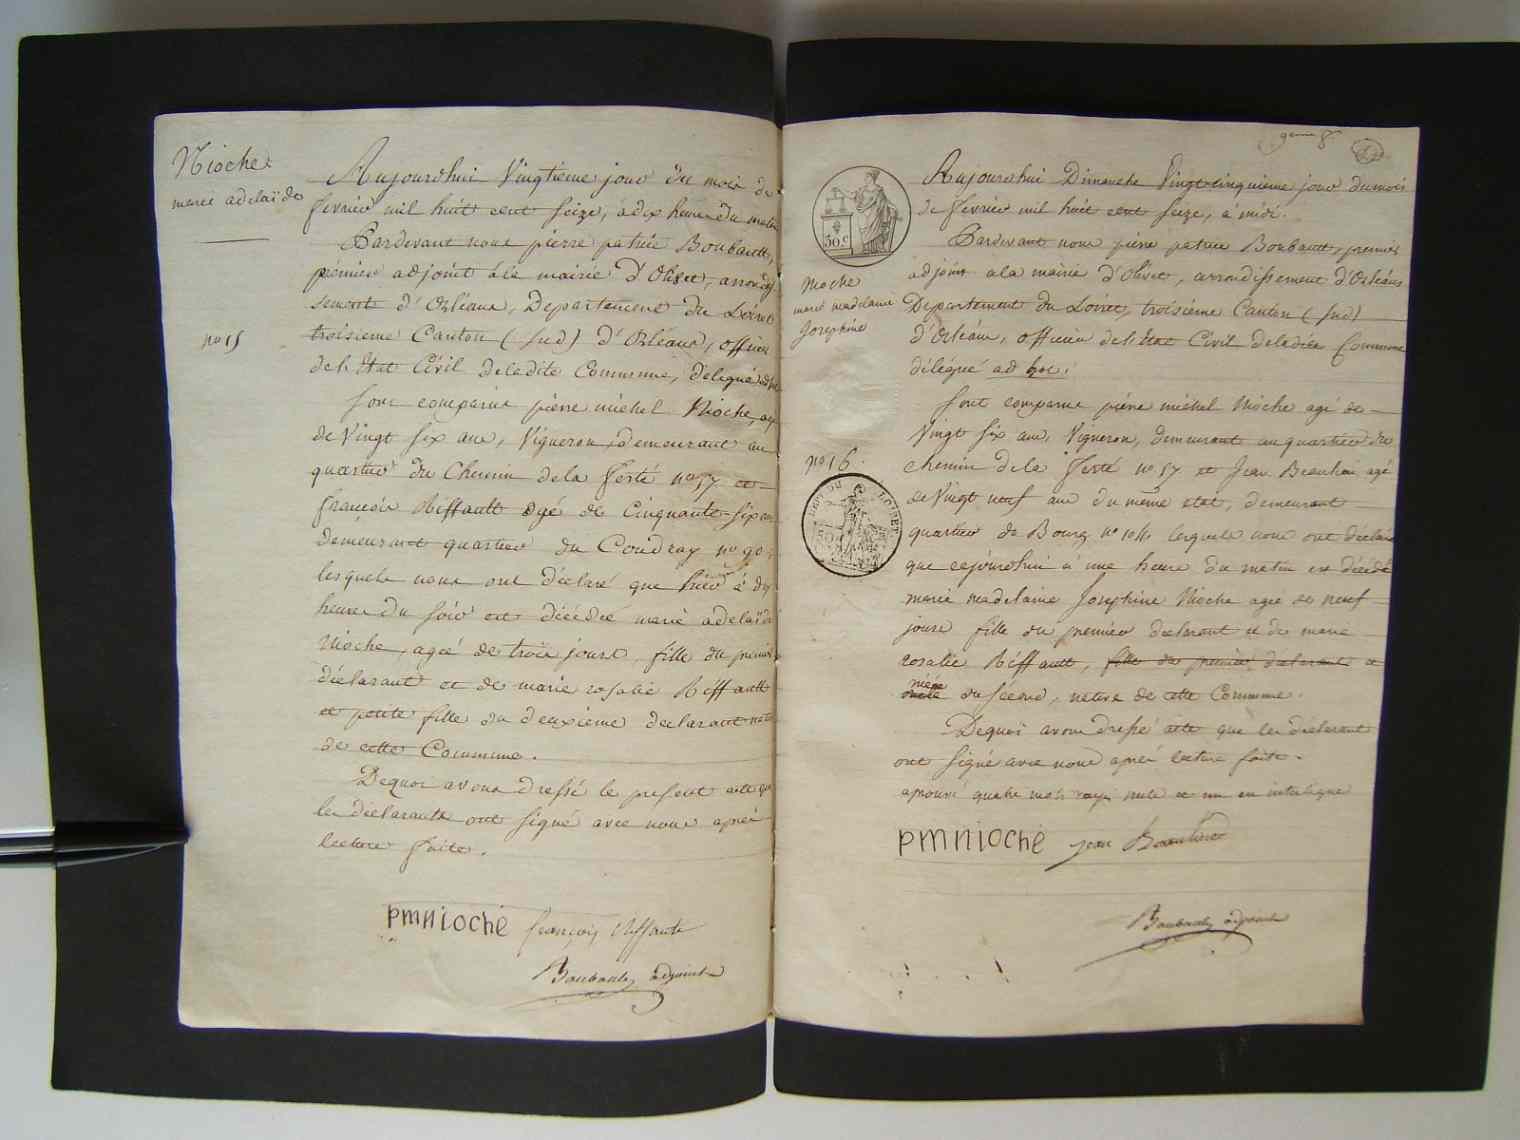 Nioche
marie adelaïde
no 15
Aujourdhui Vingtieme jour du mois de
fevrier mil huit cent seize, a dix heure du matin
Pardevant nous pierre patrice Boubault,
prémier adjoint à la mairie d'Olivet, arrondis
sement d'Orléans, Département du Loiret
troisieme Canton (sud) d'Orléans, officier
de l'Etat Civil deladite Commune, délégué ad hoc
sont comparus pierre michel Nioche, agé
de Vingt six ans, Vigneron, demeurant au
quartier du Chemin dela ferté no 57 et
françois Riffault agé de Cinquante-six ans
demeurant quartier du Coudray no 90
lesquels nous ont déclaré que hier à dix
heures du soir est décédée marie adelaïde
Nioche, agée de trois jours, fille du premier
déclarant et de marie rosalie Riffault
et petite fille du deuxieme declarant native
de cette Commune.
Dequoi avons dressé le present acte que
les declarants ont signé avec nous après
lecture faite.
PMNIOCHE françois Riffault
Boubault adjoint
9eme 8
30.c
Nioche
marie madelaine
Josephine
no 16
DEPT DU LOIRET
Aujourdhui Dimanche Vingt-cinquieme jour dumois
de fevrier mil huit cent seize, à midi.
Pardevant nous pierre patrice Boubault, premier
adjoint a la mairie d'Olivet, arrondissement d'Orléans
Departement du Loiret, troisieme Canton (sud)
d'Orléans, officier de l'Etat Civil deladite Commune
délégué ad hoc.
Sont comparus pierre michel Nioche agé de
Vingt six ans, Vigneron, demeurant au quartier du
chemin dela ferté no 57 et Jean Beauhaire agé
de Vingt neuf ans du même etat, demeurant
quartier de Bourg no 104 lesquels nous ont déclaré
que cejourdhui à une heure du matin est décédé
marie madelaine Josephine Nioche agée de neuf
jours fille du premier declarant et de marie
rosalie Riffault, fille du premier declarant et
niéce
du second, native de cette Commune.
Dequoi avons dressé acte que les déclarant
ont signé avec nous après lecture faite.
aprouvé quatre mots rayés nuls et un en interligne
PMNIOCHE jean Beauhaire
Boubault adjoint